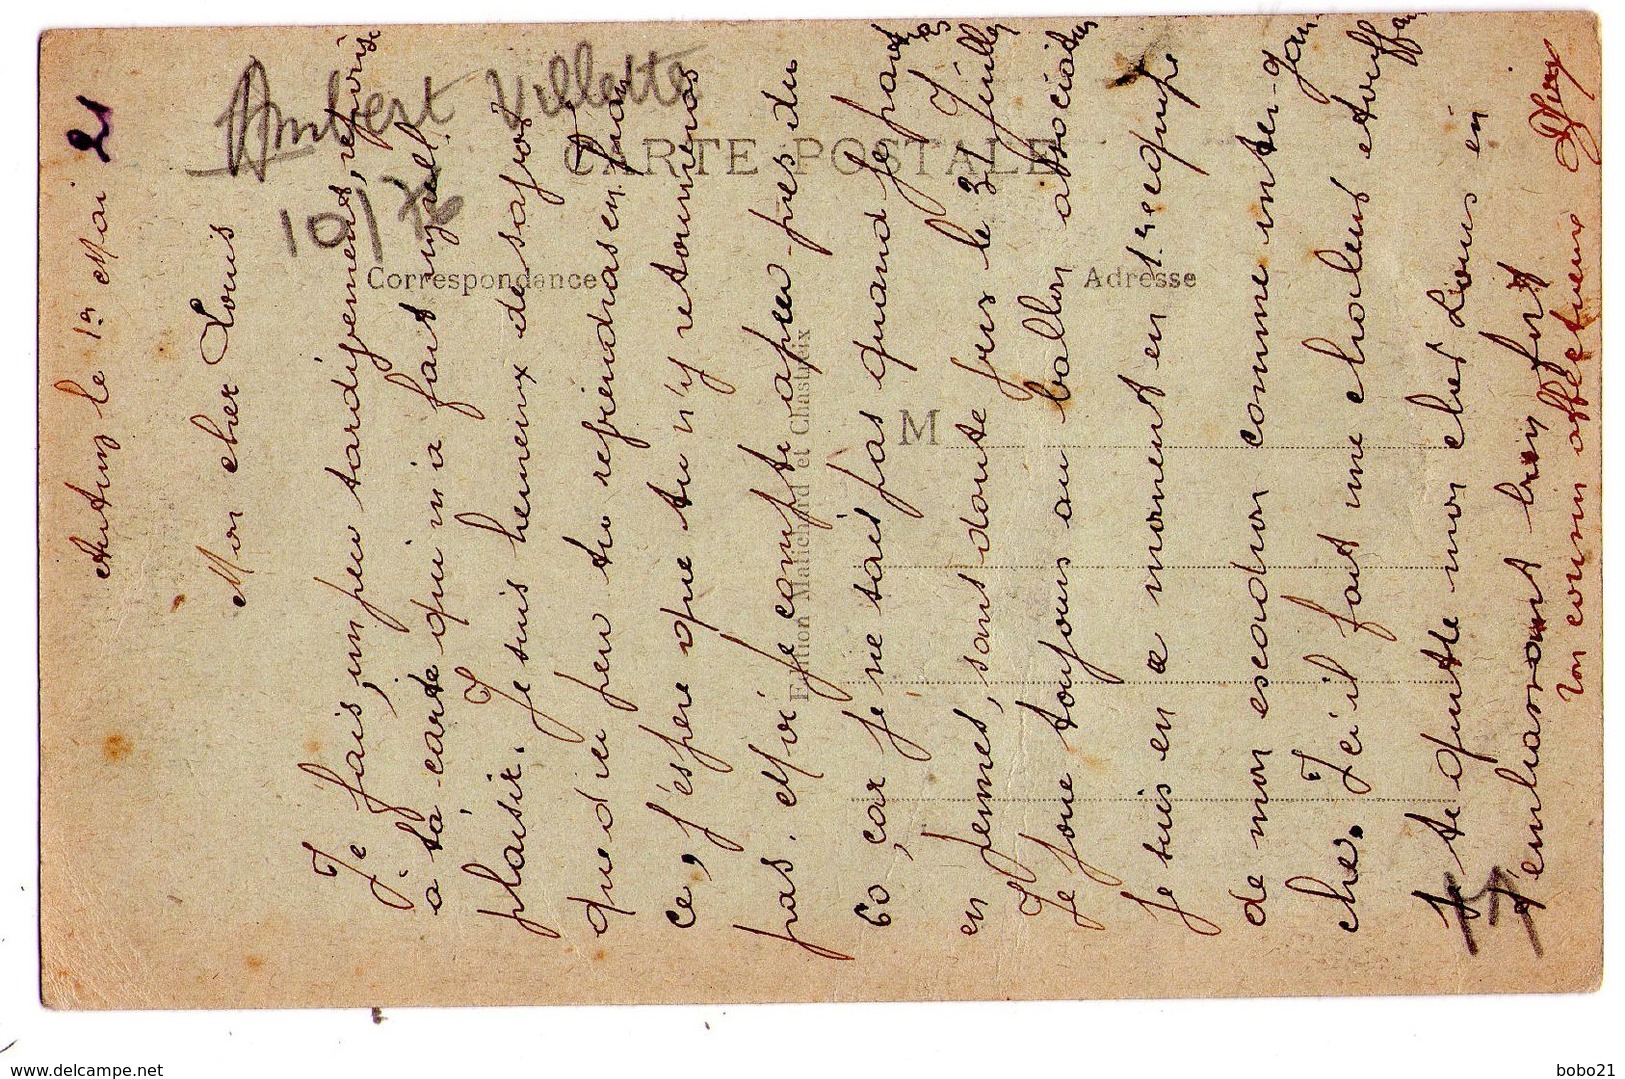 Autun le 1er Mai 21
Mon cher Louis
Je fais, un peu tardivement, réponse
à ta carte qui m'a fait grand
plaisir. Je suis heureux de savoir
que d'ici peu tu reviendras en Fran
ce, j'espère que tu n'y retourneras
pas. Moi je compte à peu près du
60, car je ne sais pas quand je pars
en permes, sans doute vers le 31 Juillet
Je joue toujours au ballon association
Je suis en ce moment en 1re equipe
de mon escadron comme inter-gau
che. Ici il fait une chaleur etouffan
Je te quitte mon cher Louis en
t'embrassant bien fort
ton cousin affectueux
CARTE POSTALE
Correspondance
Adresse
M
Edition Matichard et Chastreix
Ambert Villette
10/76
www.delcampe.net
bobo21